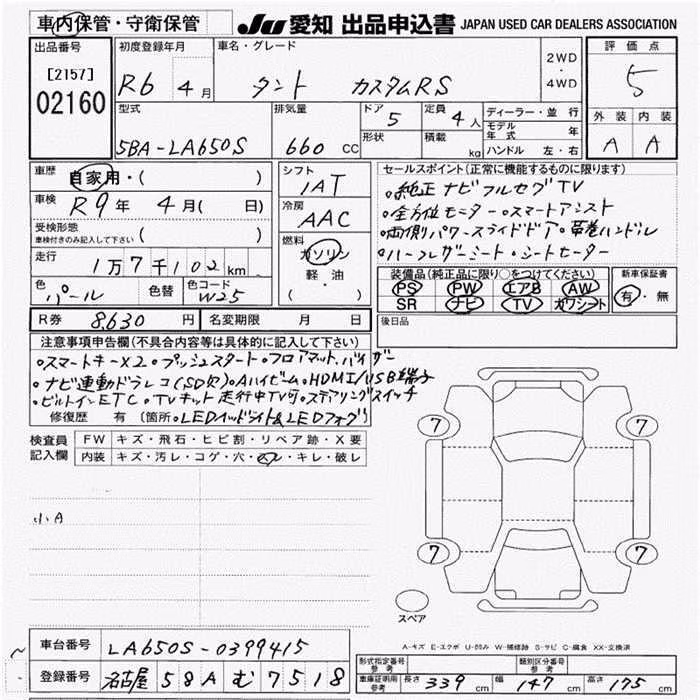 車内保管・守衛保管 JU 愛知 出品申込書 JAPAN USED CAR DEALERS ASSOCIATION
出品番号 初度登録年月 車名・グレード 2WD・4WD 評価点
[2157] R6 4月 タント カスタムRS 5
02160
型式 排気量 ドア 5 定員 4人 ディーラー・並行 外装 内装
モデル年式 年
5BA-LA650S 660cc 形状 積載 kg ハンドル 左・右 A A
車歴 自家用・( ) シフト セールスポイント(正常に機能するものに限ります)
車検 R9年 4月( 日) IAT 。純正ナビフルセグTV
受検形態 冷房 。全方位モニター。スマートアシスト
車検付きのみ記入して下さい ( ) AAC 。両側パワースライドドア。革巻ハンドル
走行 1万7千102km 燃料 ガソリン 。ハーフレザーシート。シートヒーター
軽・油
色 パール 色替 色コード W25 ( ) 装備品(純正品に限り○をつけてください) 新車保証書
PS PW エアB AW 有・無
SR ナビ TV カワシート
R券 8,630円 名変期限 月 日 後日品
注意事項申告欄(不具合内容等は具体的に記入して下さい)
。スマートキーX2。プッシュスタート。フロアマット、バイザー
。ナビ連動ドラレコ(SD欠)。Aハイビーム。HDMI/USB端子
。ビルトインETC。TVキット走行中TV可。ステアリングスイッチ
修復歴 有 (箇所 。LEDヘッドライト&LEDフォグ)
検査員記入欄 FW キズ・飛石・ヒビ割・リペア跡・X要
内装 キズ・汚レ・コゲ・穴・スレ・キレ・破レ
小A
7 7
7 7
スペア
A-キズ E-エクボ U-凹み W-補修跡 S-サビ C-腐食 XX-交換済
車台番号 LA650S-0399415
形式指定番号 参考 類別区分番号 参考
登録番号 名古屋 58A む 7518
車庫証明用参考 長さ 339cm 幅 147cm 高さ 175cm